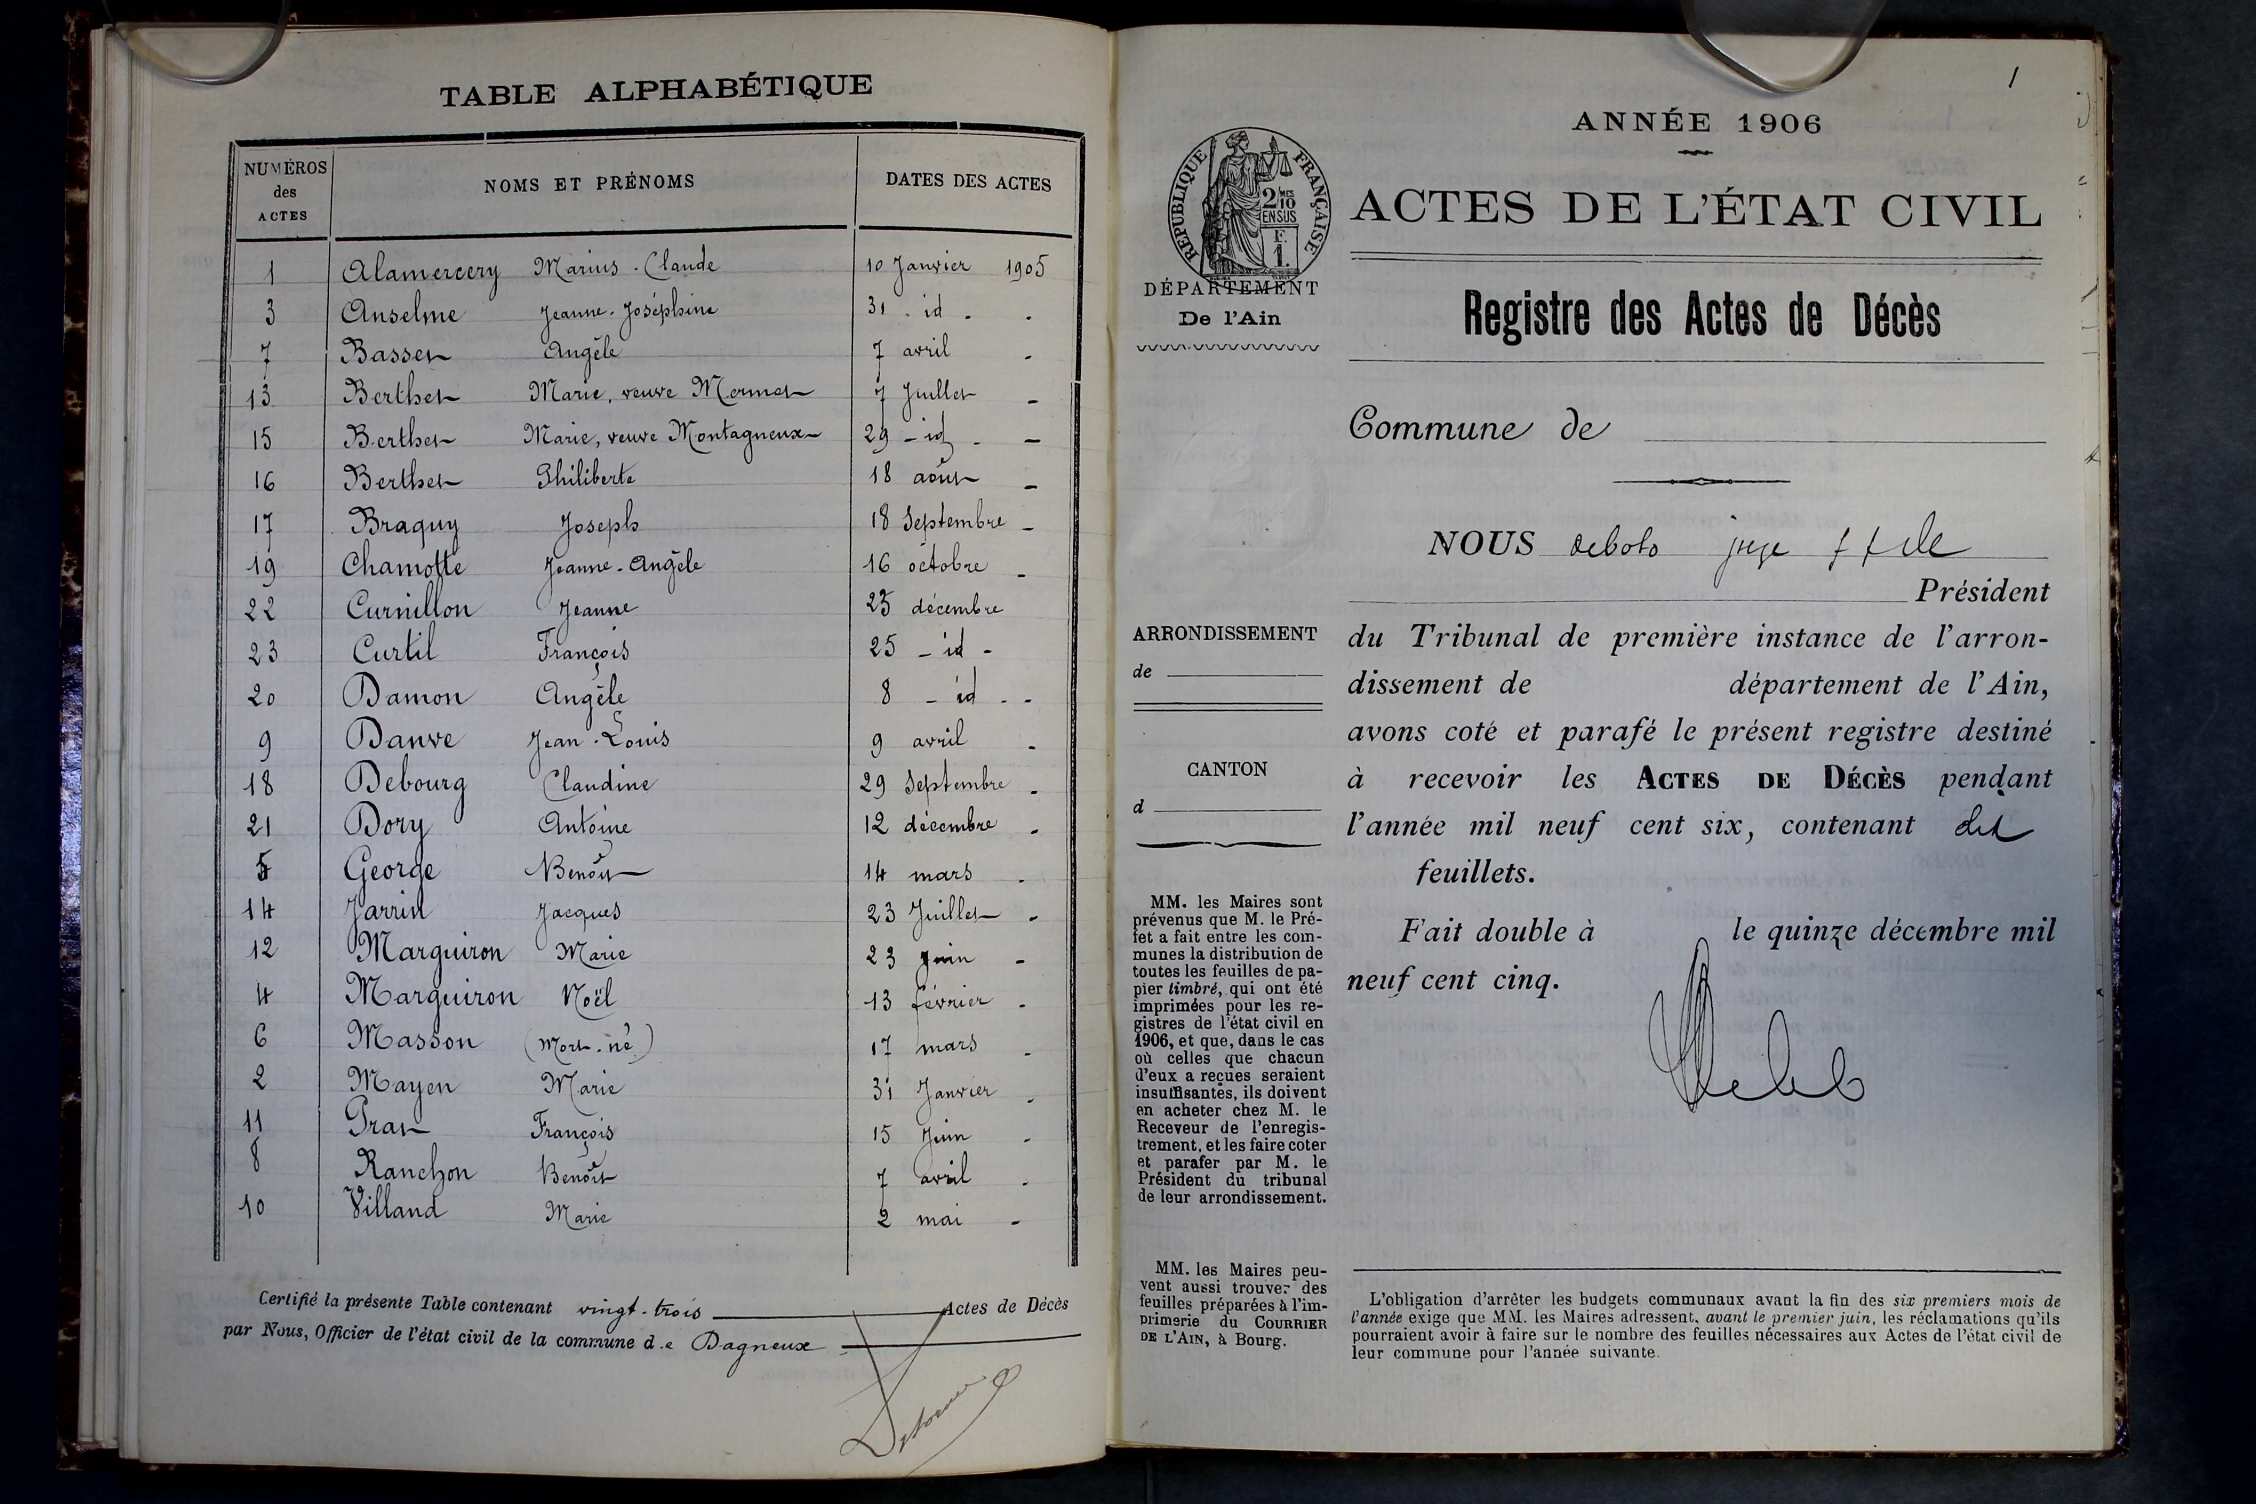 TABLE ALPHABÉTIQUE
NUMÉROS
des
ACTES
NOMS ET PRÉNOMS
DATES DES ACTES
1 Alamercery Marius-Claude 10 Janvier 1905
3 Anselme Jeanne-Joséphine 31 - id -
7 Basset Angèle 7 avril -
13 Berthet Marie, veuve Mermet 7 Juillet -
15 Berthet Marie, veuve Montagneux 29 - id - -
16 Berthet Philiberte 18 août -
17 Braguy Joseph 18 Septembre -
19 Chamotte Jeanne-Angèle 16 octobre -
22 Curnillon Jeanne 25 décembre
23 Curtil François 25 - id -
20 Damon Angèle 8 - id - -
9 Danve Jean-Louis 9 avril -
18 Debourg Claudine 29 Septembre -
21 Dory Antoine 12 décembre -
5 George Benoît 14 mars -
14 Jarrin Jacques 23 Juillet -
12 Marguiron Marie 23 Juin -
4 Marguiron Noël 13 février -
6 Masson (Mort-né) 17 mars -
2 Mayen Marie 31 Janvier -
11 Prat François 15 Juin -
8 Ranchon Benoît 7 avril -
10 Villand Marie 2 mai -
Certifié la présente Table contenant vingt-trois Actes de Décès
par Nous, Officier de l'état civil de la commune d.e Dagneux
1
ANNÉE 1906
RÉPUBLIQUE FRANÇAISE
2/10 MES
EN SUS
F.
1.
ACTES DE L'ÉTAT CIVIL
DÉPARTEMENT
De l'Ain
Registre des Actes de Décès
Commune de
NOUS juge
Président
ARRONDISSEMENT
de
CANTON
d
du Tribunal de première instance de l'arron-
dissement de département de l'Ain,
avons coté et parafé le présent registre destiné
à recevoir les ACTES DE DÉCÈS pendant
l'année mil neuf cent six, contenant
feuillets.
Fait double à le quinze décembre mil
neuf cent cinq.
MM. les Maires sont
prévenus que M. le Pré-
fet a fait entre les com-
munes la distribution de
toutes les feuilles de pa-
pier timbré, qui ont été
imprimées pour les re-
gistres de l'état civil en
1906, et que, dans le cas
où celles que chacun
d'eux a reçues seraient
insuffisantes, ils doivent
en acheter chez M. le
Receveur de l'enregis-
trement, et les faire coter
et parafer par M. le
Président du tribunal
de leur arrondissement.
MM. les Maires peu-
vent aussi trouver des
feuilles préparées à l'im-
primerie du COURRIER
DE L'AIN, à Bourg.
L'obligation d'arrêter les budgets communaux avant la fin des six premiers mois de
l'année exige que MM. les Maires adressent, avant le premier juin, les réclamations qu'ils
pourraient avoir à faire sur le nombre des feuilles nécessaires aux Actes de l'état civil de
leur commune pour l'année suivante.